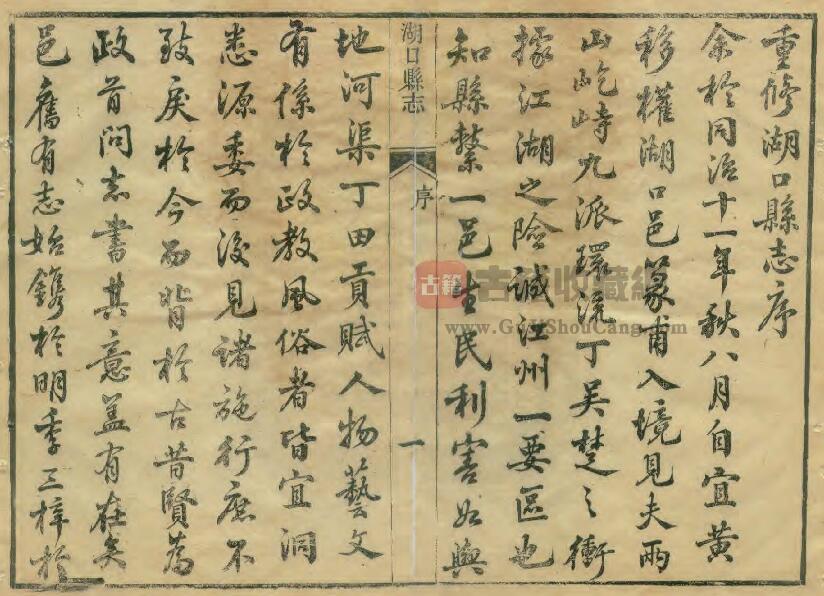 重修湖口縣志序
余於同治十一年秋八月自宜黃
移權湖口邑篆甫入境見夫兩
山屹峙九派環流丁吳楚之衝
據江湖之險誠江州一要區也
知縣繫一邑生民利害如輿
湖口縣志
序
一
地河渠丁田貢賦人物藝文
有係於政教風俗者皆宜洞
悉源委而後見諸施行庶不
致戾於今而背於古昔賢為
政首問志書其意蓋有在矣
邑舊有志始鐫於明季三梓於
古籍
古籍收藏網
www.GuJiShouCang.com